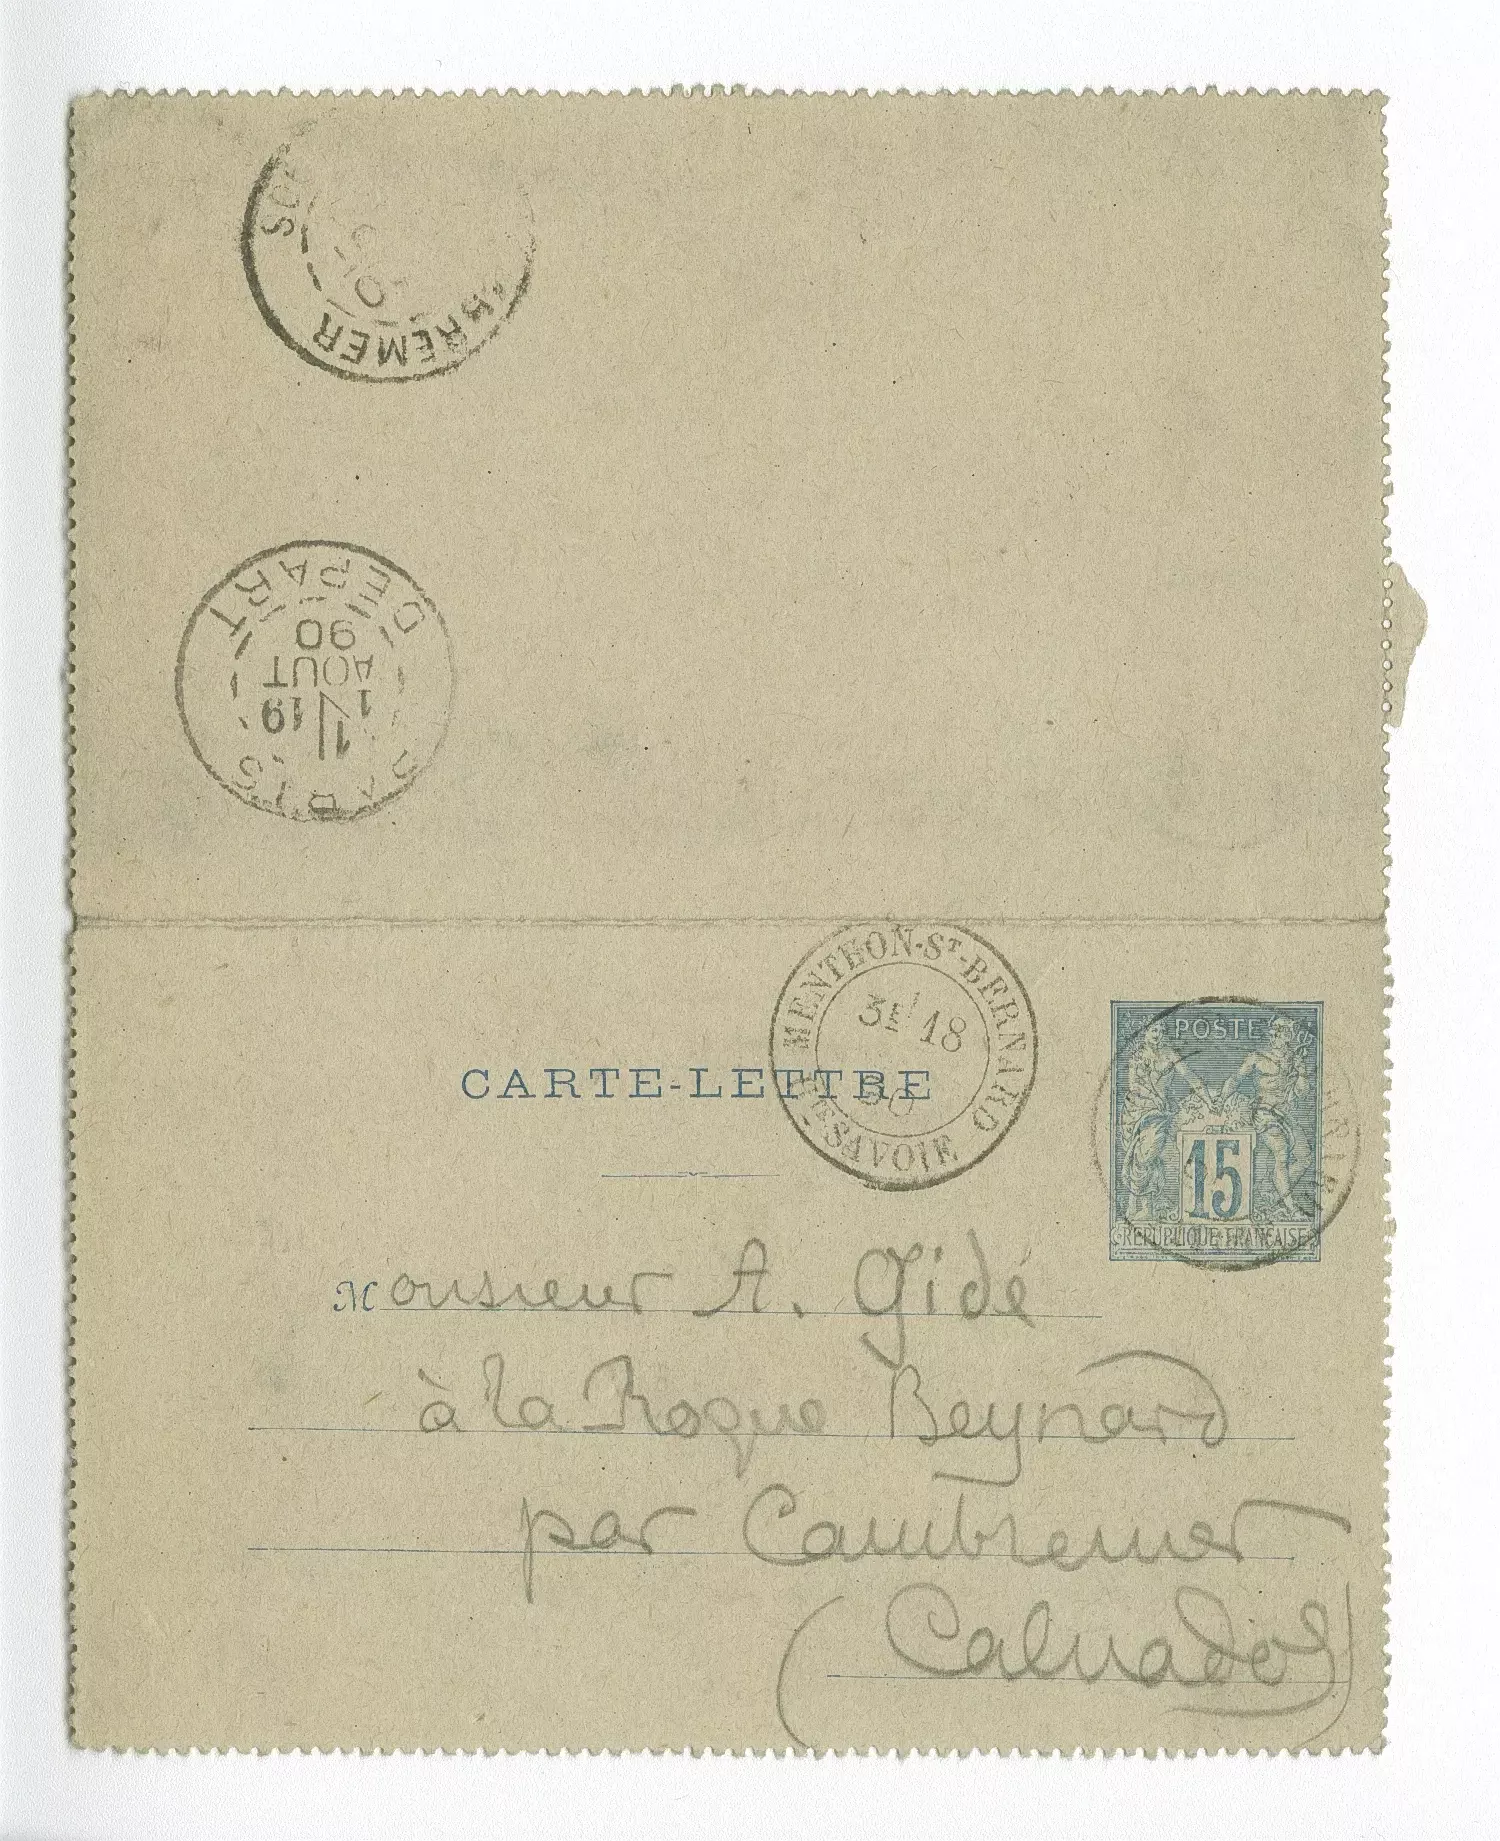 CAMBREMER
PARIS DEPART
1 19
AOUT
90
MENTHON-ST-BERNARD
3E 18
90
HTE-SAVOIE
CARTE-LETTRE
POSTE
15
REPUBLIQUE FRANCAISE
Monsieur A. Gidé
à la Roque Beynard
par Cambremer
(Calvados)